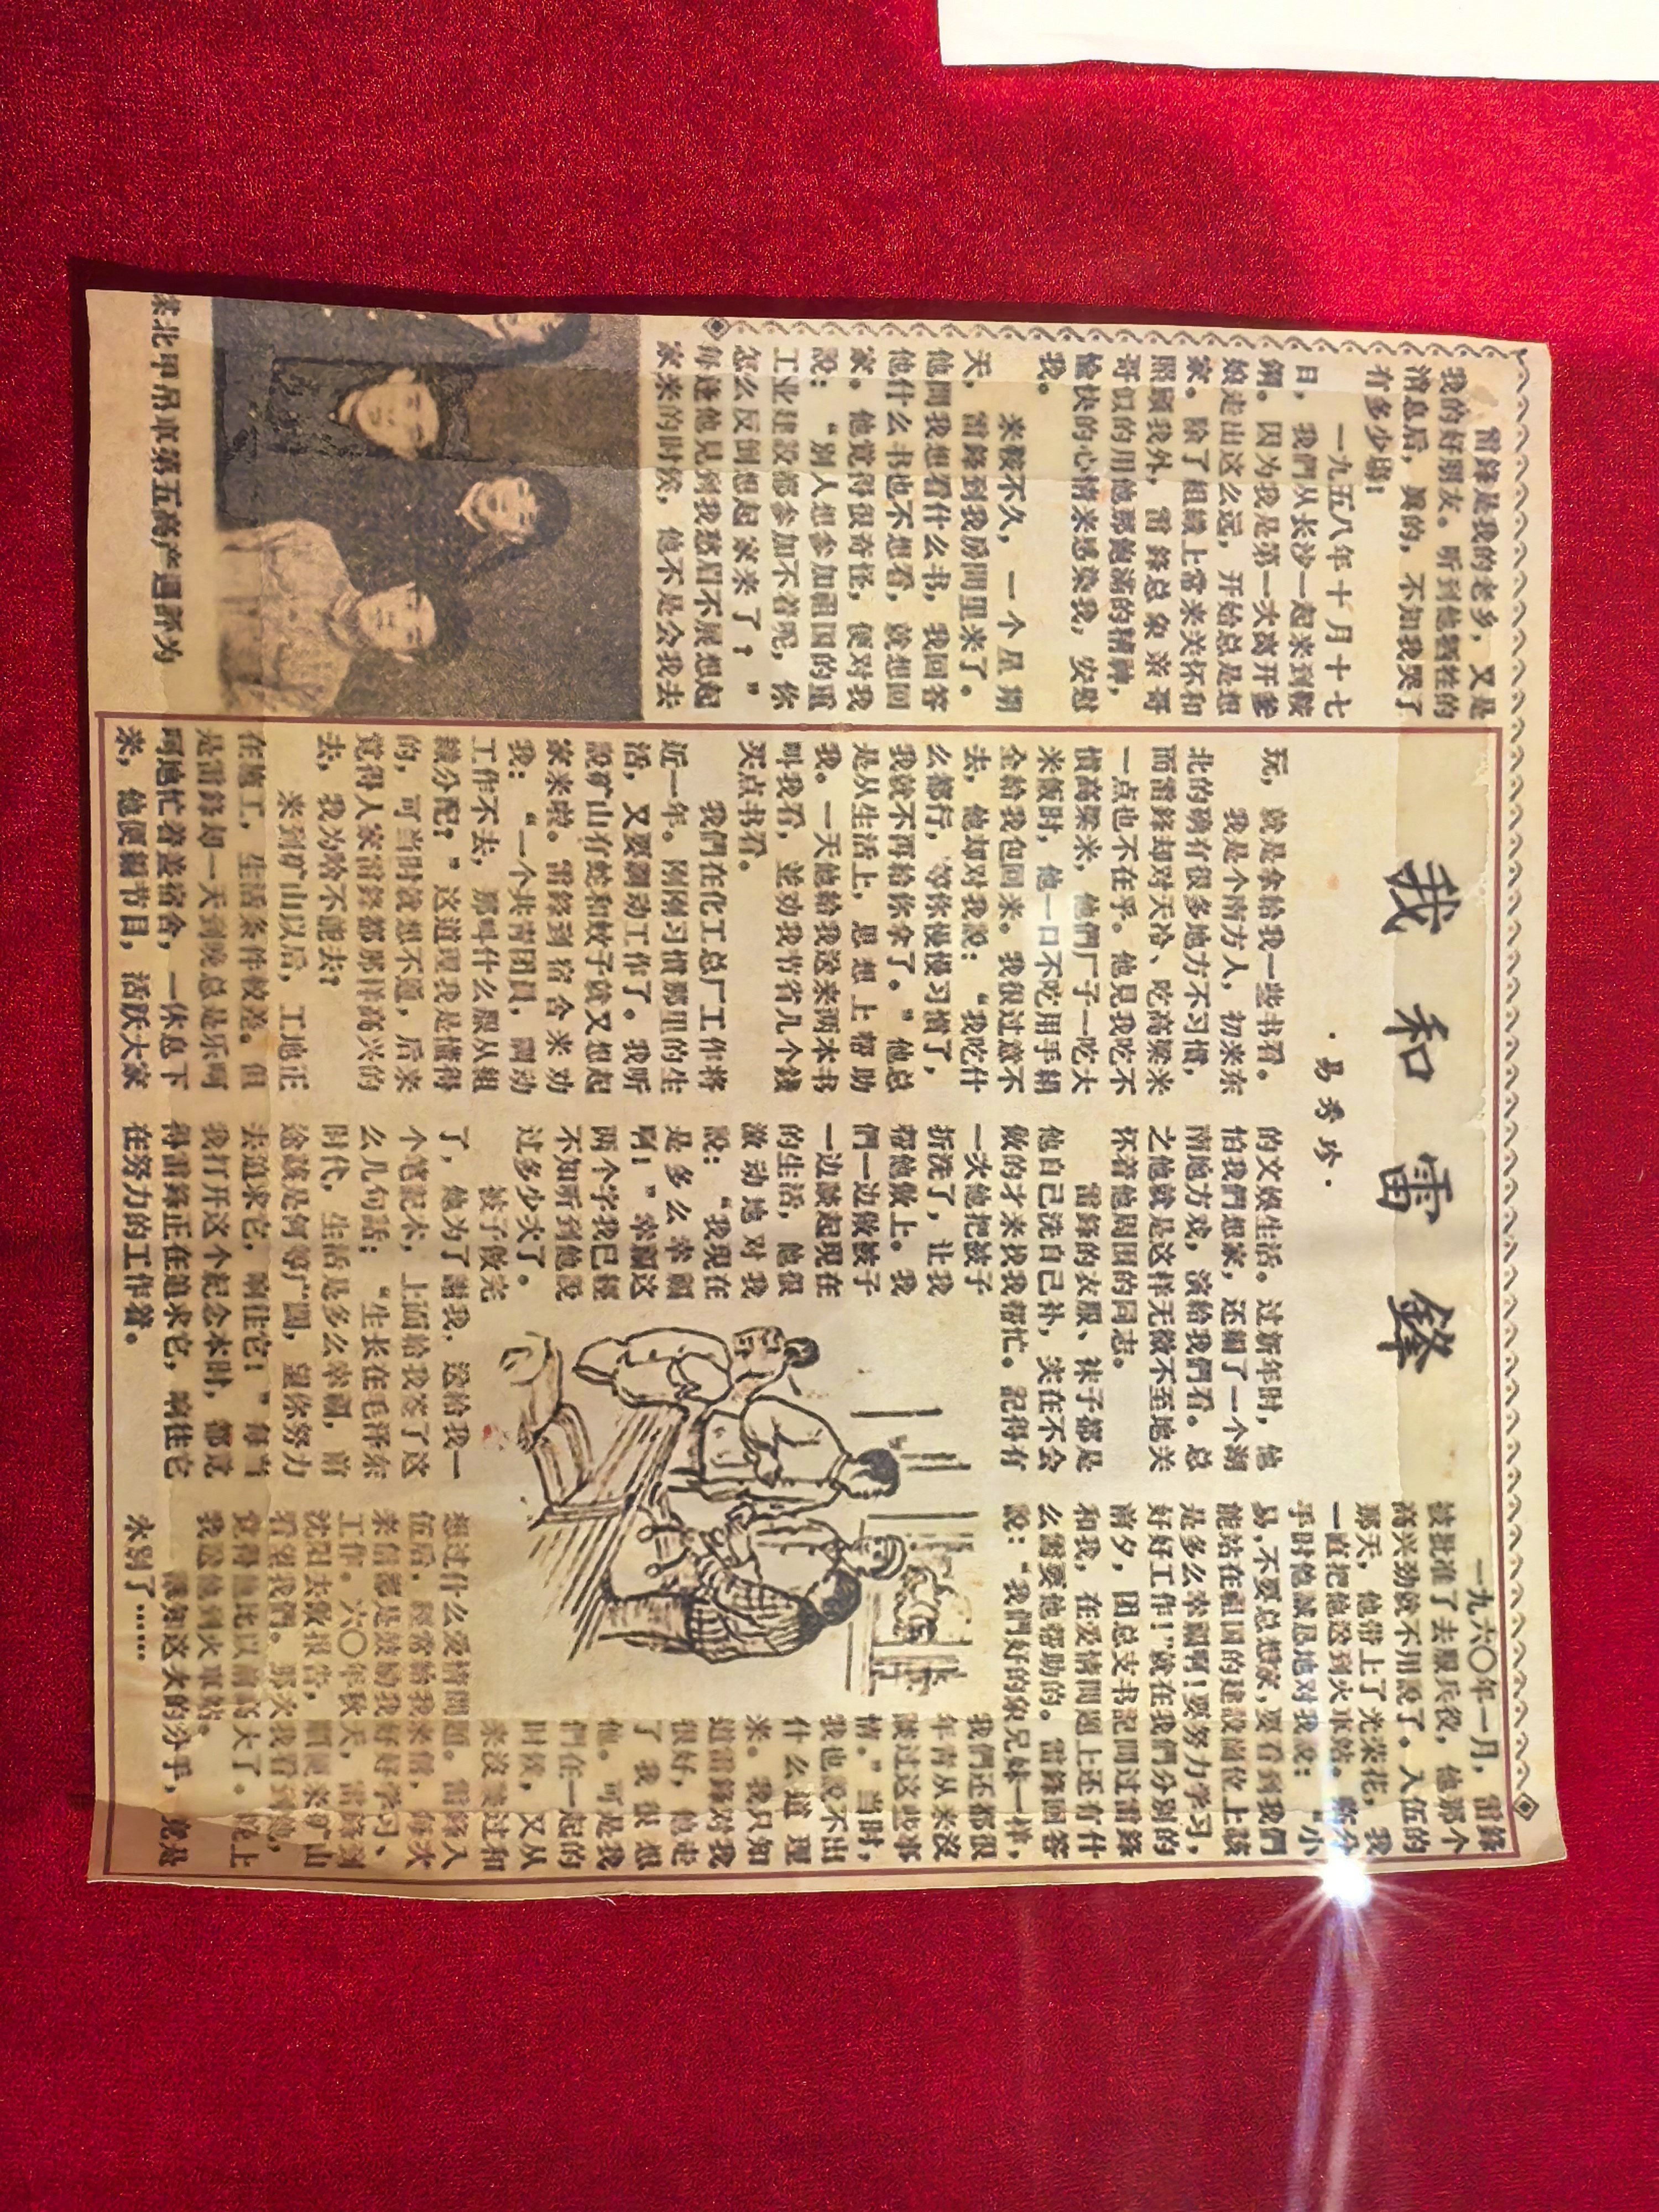 我和雷鋒
·易秀珍·
雷鋒是我的老乡，又是
我的好朋友。听到他牺牲的
消息后，真的，不知我哭了
有多少場！
一九五八年十月十七
日，我們从长沙一起来到鞍
鋼。因为我是第一次离开爹
娘走出这么远，开始总是想
家。除了組織上常来关怀和
照顾我外，雷鋒总象亲哥
哥似的用他那飽滿的精神，
愉快的心情来感染我，安慰
我。
来鞍不久，一个星期
天，雷鋒到我房間里来了。
他問我想看什么书，我回答
他什么书也不想看，就想回
家。他觉得很奇怪，便对我
說：“别人想参加祖国的重
工业建設都参加不着呢，你
怎么反倒想起家来了？”
每逢他見到我愁眉不展想起
家来的时候，他不是会我去
玩，就是拿給我一些书看。
我是个南方人，初来东
北的确有很多地方不习慣，
而雷鋒却对天冷、吃高粱米
一点也不在乎。他見我吃不
慣高粱米，他們厂子一吃大
米飯时，他一口不吃用手絹
全給我包回来。我很过意不
去，他却对我說：“我吃什
么都行，等你慢慢习慣了，
我就不再給你拿了。”他总
是从生活上，思想上帮助
我。一天他給我送来两本书
叫我看，並劝我节省几个錢
买点书看。
我們在化工总厂工作将
近一年。刚刚习慣那里的生
活，又要調动工作了。我听
說矿山有蛇和蚊子就又想起
家来啦。雷鋒到宿舍来劝
我：“一个共青团員，調动
工作不去，那叫什么服从組
織分配？”这道理我是懂得
的，可当时就想不通，后来
觉得人家雷鋒都那样高兴的
去，我为啥不能去？
来到矿山以后，工地正
在施工，生活条件較差。但
是雷鋒每一天到晚总是乐呵
呵地忙着盖宿舍，一休息下
来，他便編节目，活跃大家
的文娱生活。过新年时，他
怕我們想家，还編了一个湖
南地方戏，演給我們看。总
之他就是这样无微不至地关
怀着他周围的同志。
雷鋒的衣服、袜子都是
他自己洗自己补，实在不会
做的才来找我帮忙。記得有
一次他把被子
折洗了，让我
帮他做上。我
們一边做被子
一边談起現在
的生活，他很
激动地对我
說：“我現在
是多么幸福
啊！”幸福这
两个字我已經
不知听到他說
过多少次了。
被子做完
了，他为了謝我，送給我一
个笔記本，上面給我签了这
么几句話：“生长在毛泽东
时代，生活是多么幸福，前
途該是何等广闊，望你努力
去追求它，响往它！”每当
我打开这个紀念本时，都觉
得雷鋒正在追求它，响往它
在努力的工作着。
一九六〇年一月，雷鋒
被批准了去服兵役，他那个
高兴劲就不用說了。入伍的
那天，他带上了光荣花，我
一直把他送到火車站。临分
手时他誠恳地对我說：“小
易，不要总想家，要看到我們
能站在祖国的建設崗位上該
是多么幸福啊！要努力学习，
好好工作！”就在我們分别的
前夕，团总支书記問过雷鋒
和我，在爱情問題上还有什
么需要他帮助的。雷鋒回答
說：“我們好的象兄妹一样，
我們还都很
年青从来沒
談过这些事
情。”当时，
我也說不出
什么道理
来。我只知
道雷鋒对我
很好，他走
了我很想
他。可是我
們在一起的
时候，又从
来沒談过和
想过什么爱情問題。雷鋒入
伍后，經常給我来信，每次
来信都是鼓励我好好学习、
工作。六〇年秋天，雷鋒到
沈阳去做报告，順便来矿山
看望我們。那次我看到他，
觉得他比以前高大了。晚上
我送他到火車站。
誰知这次的分手，竟是
永别了……
北甲吊車第五高产週